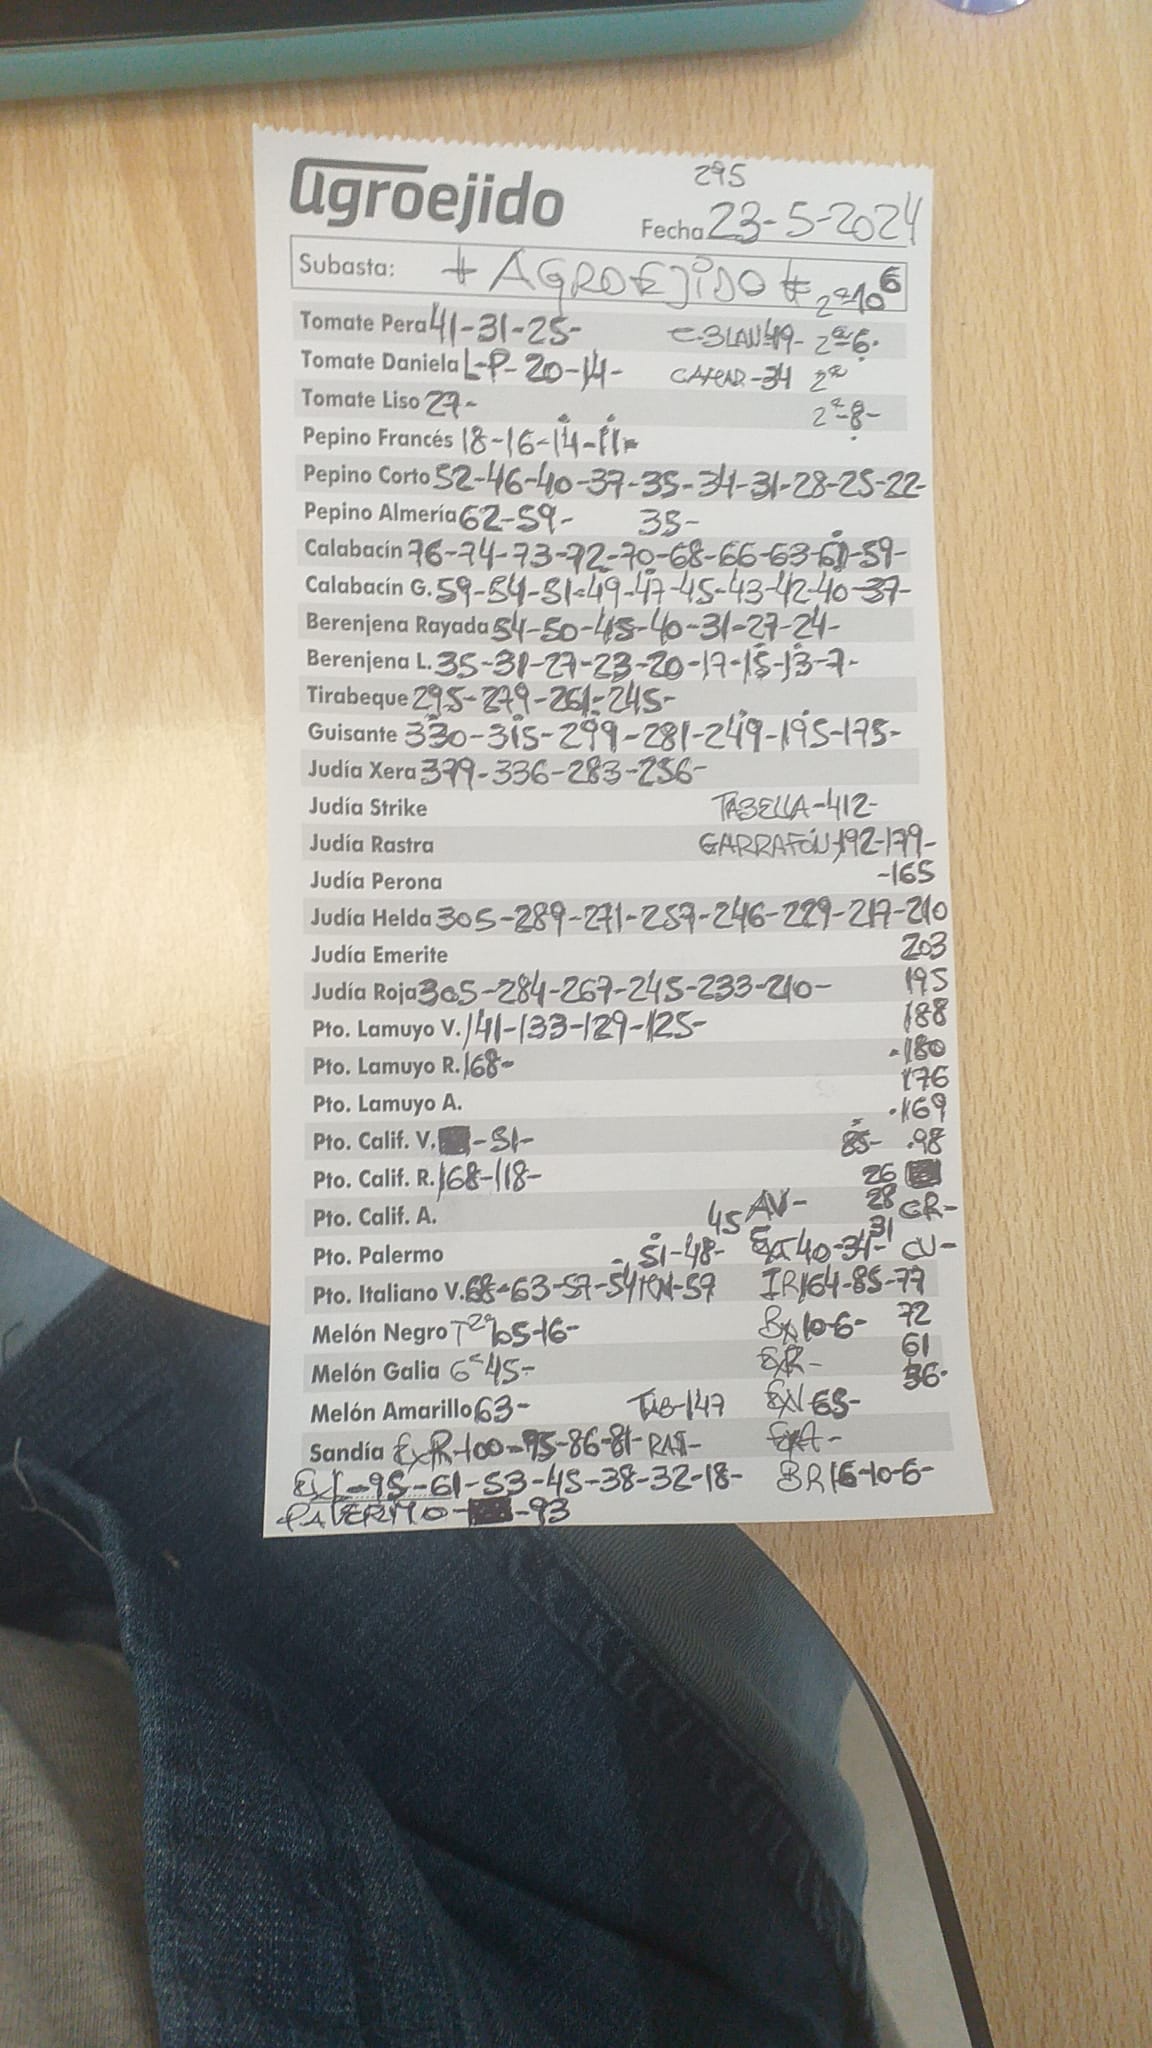 agroejido
295
Fecha 23-5-2024
Subasta: + AGROEJIDO + 2ª 10 6
Tomate Pera 41-31-25- C-BLAN-49- 2ª-6.
Tomate Daniela L-P- 20-14- 34 2ª
Tomate Liso 27- 2ª-8-
Pepino Francés 18-16-14-11-
Pepino Corto 52-46-40-37-35-34-31-28-25-22-
Pepino Almería 62-59- 35-
Calabacín 76-74-73-72-70-68-66-63-61-59-
Calabacín G. 59-54-51-49-47-45-43-42-40-37-
Berenjena Rayada 54-50-45-40-31-27-24-
Berenjena L. 35-31-27-23-20-17-15-13-7-
Tirabeque 295-279-261-245-
Guisante 330-315-299-281-249-195-175-
Judía Xera 379-336-283-256-
Judía Strike TABELLA-412-
Judía Rastra GARRAFÓN-192-179-
Judía Perona -165
Judía Helda 305-289-271-257-246-229-217-210
Judía Emerite 203
Judía Roja 305-284-267-245-233-210- 195
Pto. Lamuyo V. 141-133-129-125- 188
Pto. Lamuyo R. 168- 180
Pto. Lamuyo A. 176
169
Pto. Calif. V. -51- 85- 98
Pto. Calif. R. 168-118- 26
Pto. Calif. A. 45 AV- 28 CR-
31
Pto. Palermo 51-48- 40-34- CU-
Pto. Italiano V. 68-63-57-54 57 IR164-85-77
Melón Negro T2ª 16- BX10-6- 72
Melón Galia G 45- EXR- 61
36-
Melón Amarillo 63- TAB-147 EXV 65-
Sandía EXR-100-95-86-81- EXA-
EXL-95-61-53-45-38-32-18- BR16-10-6-
-93